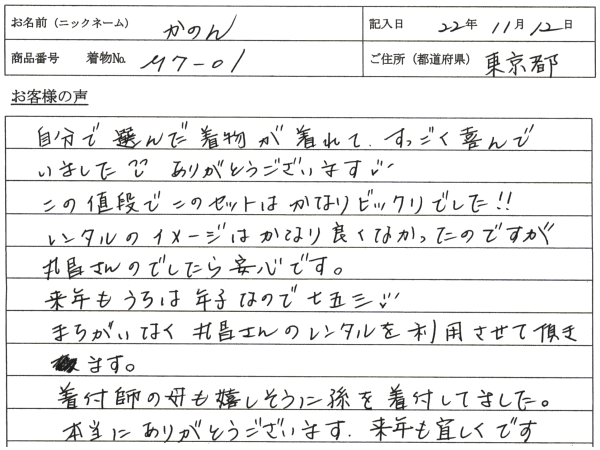 お名前（ニックネーム） かのん 記入日 22年 11月 12日
商品番号 着物No. M7-01 ご住所（都道府県） 東京都
お客様の声
自分で選んだ着物が着れて、すっごく喜んで
いました ありがとうございます
この値段でこのセットはかなりビックリでした!!
レンタルのイメージはかなり良くなかったのですが
丸昌さんのでしたら安心です。
来年もうちは年子なので七五三
まちがいなく丸昌さんのレンタルを利用させて頂き
ます。
着付師の母も嬉しそうに孫を着付してました。
本当にありがとうございます. 来年も宜しくです